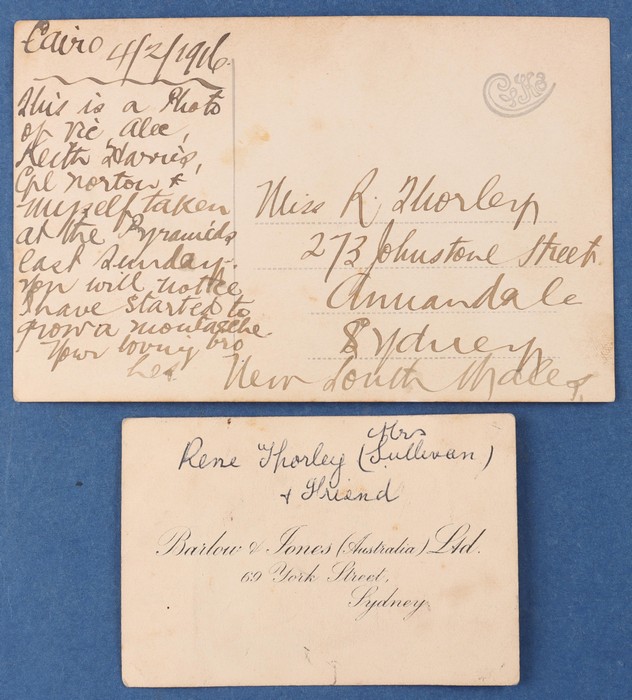 Cairo 4/2/1916.
This is a Photo
of Vic, Alec,
Keith Harris,
Cpl Norton &
myself taken
at the Pyramids
last Sunday.
you will notice
I have started to
grow a moustache
Your loving bro
Miss R. Thorley
273 Johnstone Street.
Annandale
Sydney
New South Wales.
Mrs
Rene Thorley (Sullivan)
& Friend
Barlow & Jones (Australia) Ltd.
69 York Street,
Sydney